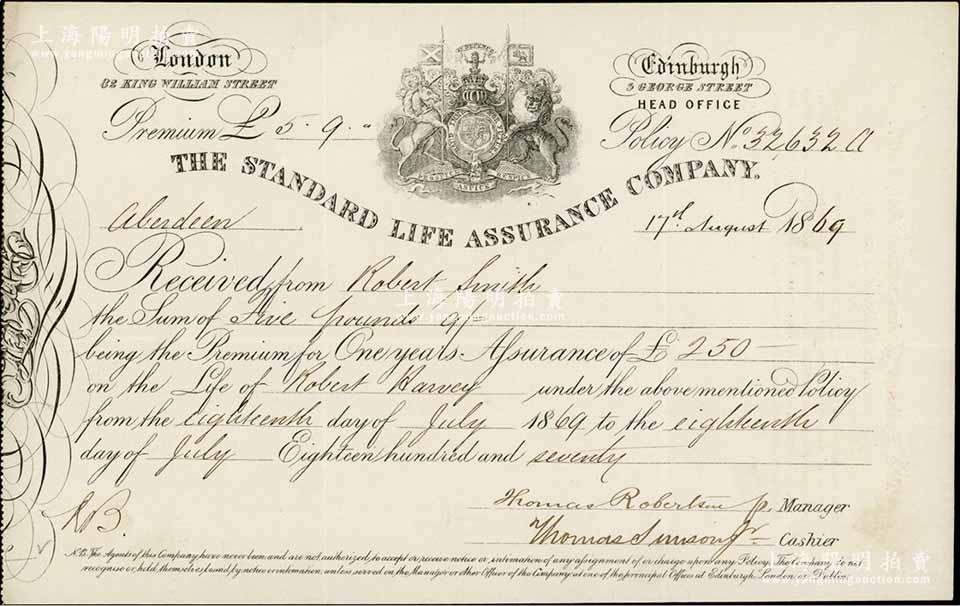 上海陽明拍賣
www.yangmingauction.com
London
82 KING WILLIAM STREET
Edinburgh
3 GEORGE STREET
HEAD OFFICE
Premium £ 5 . 9 . "
Policy No 32,632 A
THE STANDARD LIFE ASSURANCE COMPANY.
Aberdeen
17th August 1869
Received from Robert Smith
上海陽明拍賣
www.yangmingauction.com
the Sum of Five pounds 9/-
being the Premium for One years Assurance of £ 250 —
on the Life of Robert Harvey under the above mentioned Policy
from the eighteenth day of July 1869 to the eighteenth
day of July Eighteen hundred and seventy
Thomas Robertson Manager
RB
Thomas Simson Jr Cashier
N.B. The Agents of this Company have never been and are not authorized, to accept or receive notice or intimation of any assignment of or charge upon any Policy. The Company do not
recognise or hold themselves bound by notice or intimation unless served on the Manager or other Officer of the Company at one of the principal Offices at Edinburgh, London or Dublin.
上海陽明拍賣
www.yangmingauction.com